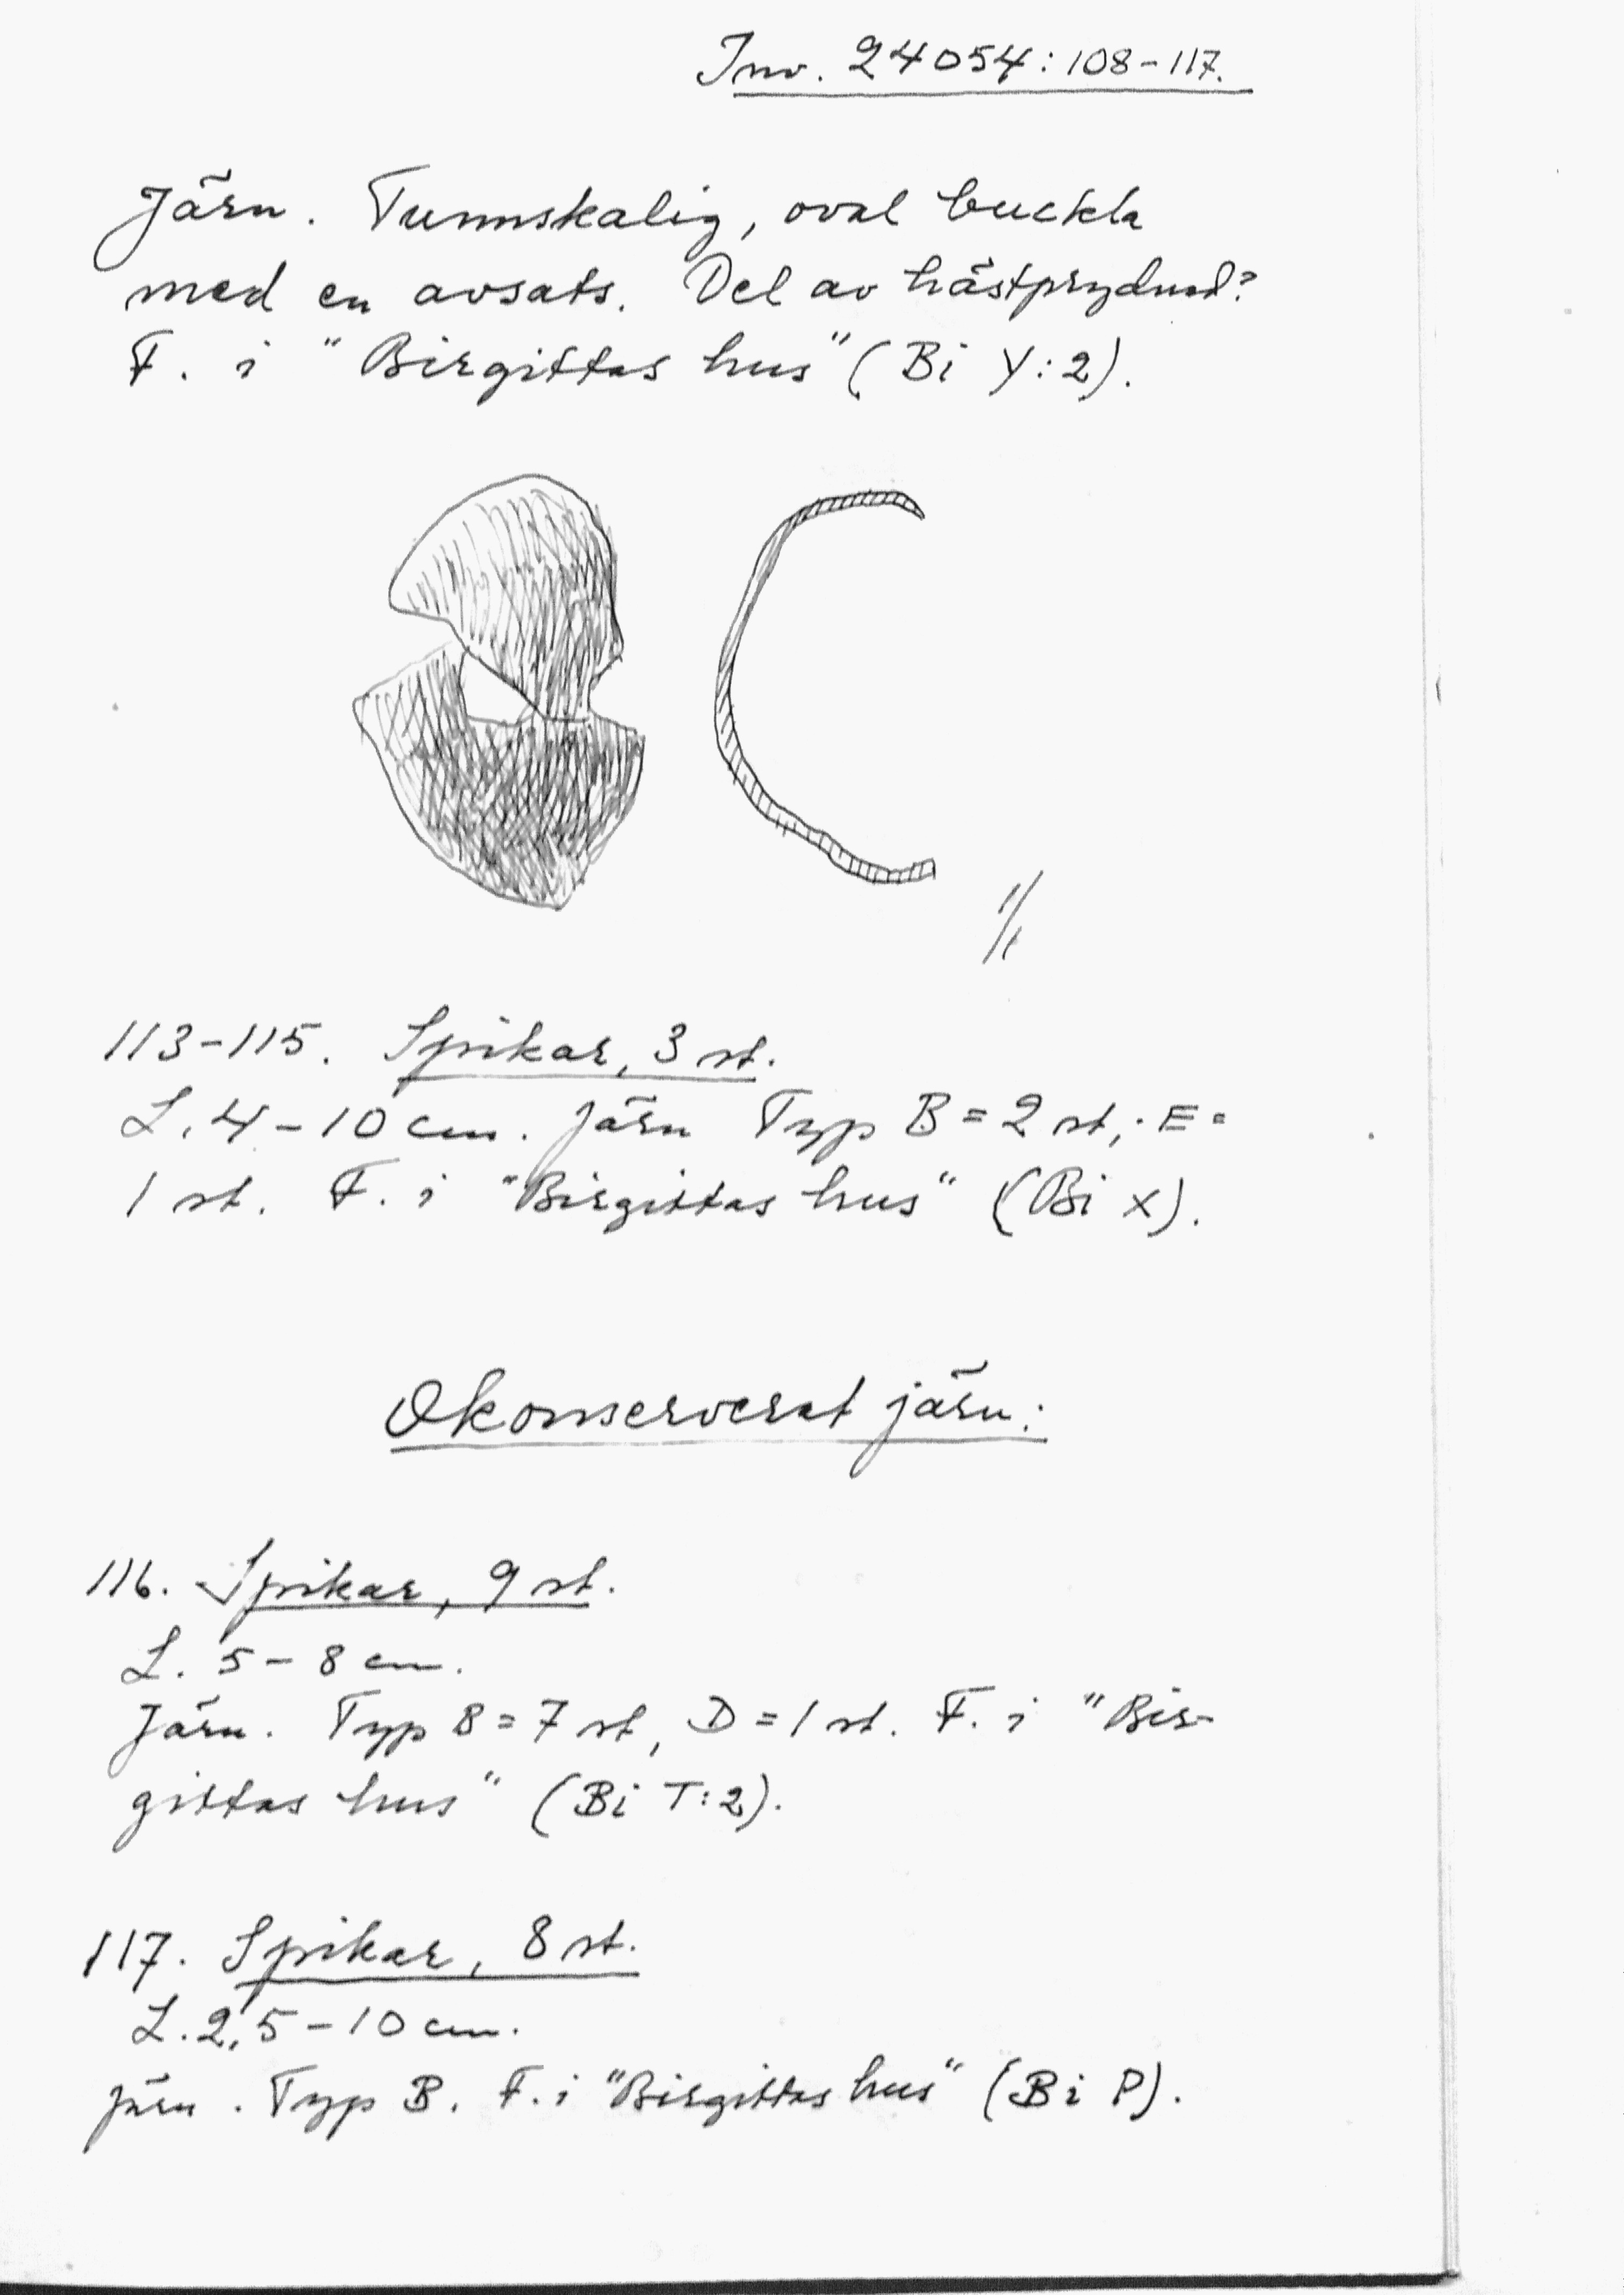 Inv. 24054:108-117.
Järn. Tunnskalig, oval buckla
med en avsats. Del av hästprydnad?
F. i "Birgittas hus" (Bi Y:2).
1/1
113-115. Spikar, 3 st.
L. 4-10 cm. Järn Typ B=2 st, E=
1 st. F. i "Birgittas hus" (Bi X).
Okonserverat järn:
116. Spikar, 9 st.
L. 5-8 cm.
Järn. Typ B=7 st, D=1 st. F. i "Bir-
gittas hus" (Bi T:2).
117. Spikar, 8 st.
L. 2,5-10 cm.
Järn. Typ B. F. i "Birgittas hus" (Bi P).